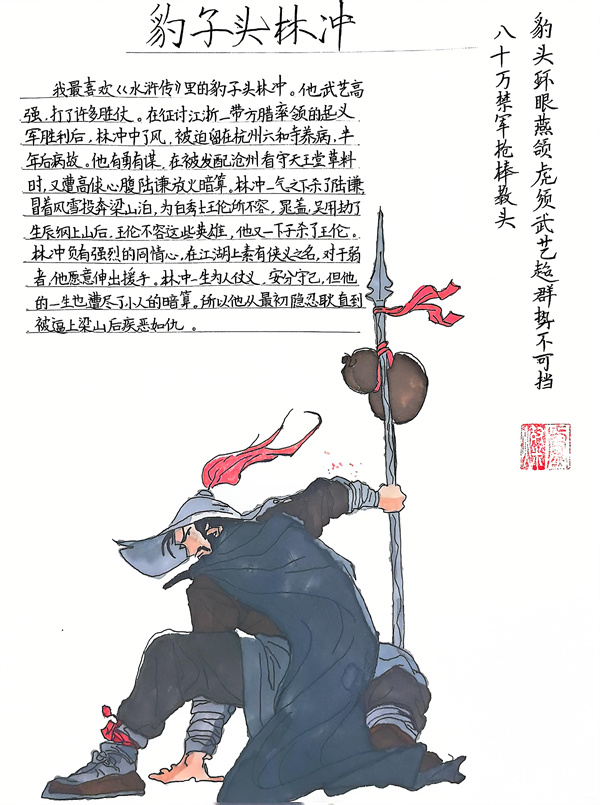 豹子头林冲
我最喜欢《水浒传》里的豹子头林冲。他武艺高
强,打了许多胜仗。在征讨江浙一带方腊率领的起义
军胜利后,林冲中了风,被迫留在杭州六和寺养病,半
年后病故。他有勇有谋,在被发配沧州看守天王堂草料
时,又遭高俅心腹陆谦放火暗算。林冲一气之下杀了陆谦
冒着风雪投奔梁山泊,为白秀士王伦所不容,晁盖,吴用劫了
生辰纲上山后,王伦不容这些英雄,他又一下子杀了王伦。
林冲负有强烈的同情心,在江湖上素有侠义之名,对于弱
者,他愿意伸出援手。林冲一生为人仗义,安分守己,但他
的一生也遭尽了小人的暗算。所以他从最初隐忍耿直到
被逼上梁山后疾恶如仇。
豹头环眼燕颔虎须武艺超群势不可挡
八十万禁军枪棒教头